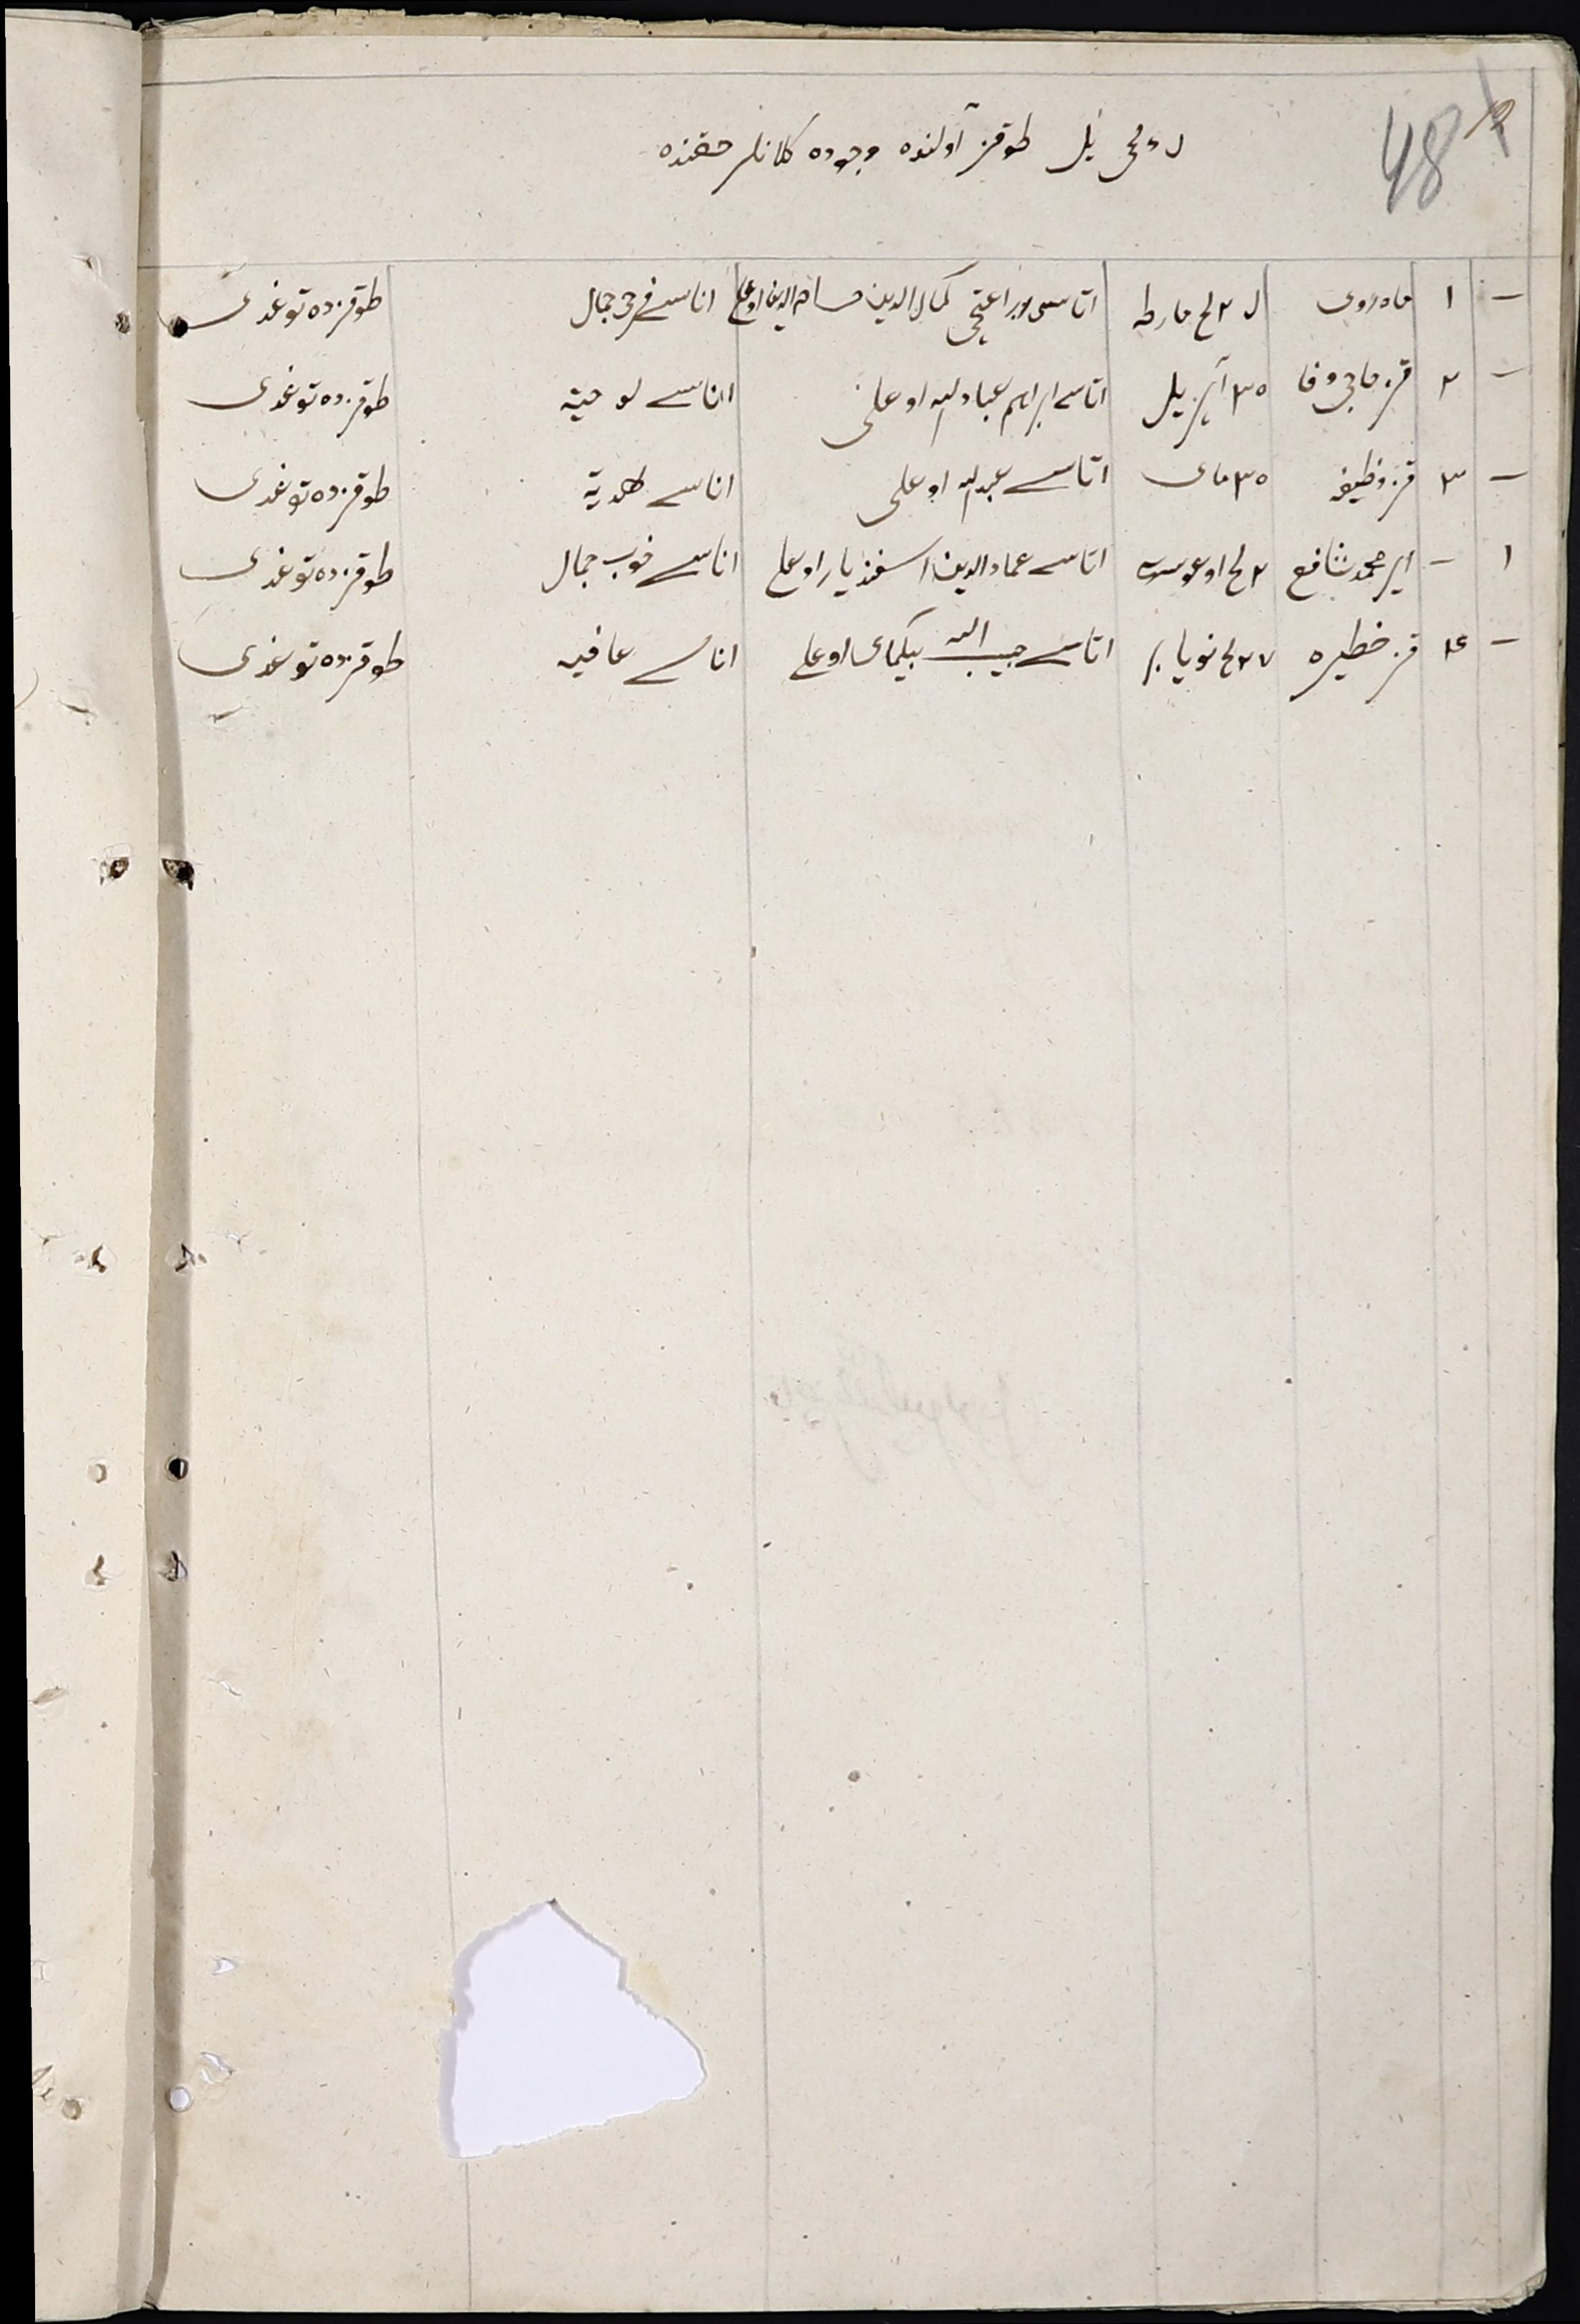 48
نچی یل طوقز آولنده وجوده کلانلر حقنده
— ۱ ماه روی مارط اتاسی کمال الدین حسام الدین اوغلی اناسی فرح جمال طوقزده توغدی
— ۲ قز ماجی وفا ۳۰ آپریل اتاسی ابراهیم عبادالله اوغلی اناسی طوقزده توغدی
— ۳ قز وظیفه ۳۰ مای اتاسی عبدالله اوغلی اناسی هدیة طوقزده توغدی
۱ — ایر محمد شافع اوغوست اتاسی عمادالدین اسفندیار اوغلی اناسی خوب جمال طوقزده توغدی
— ۴ قز خطیره نویابر اتاسی حبیب الله بیکمای اوغلی اناسی عافیه طوقزده توغدی